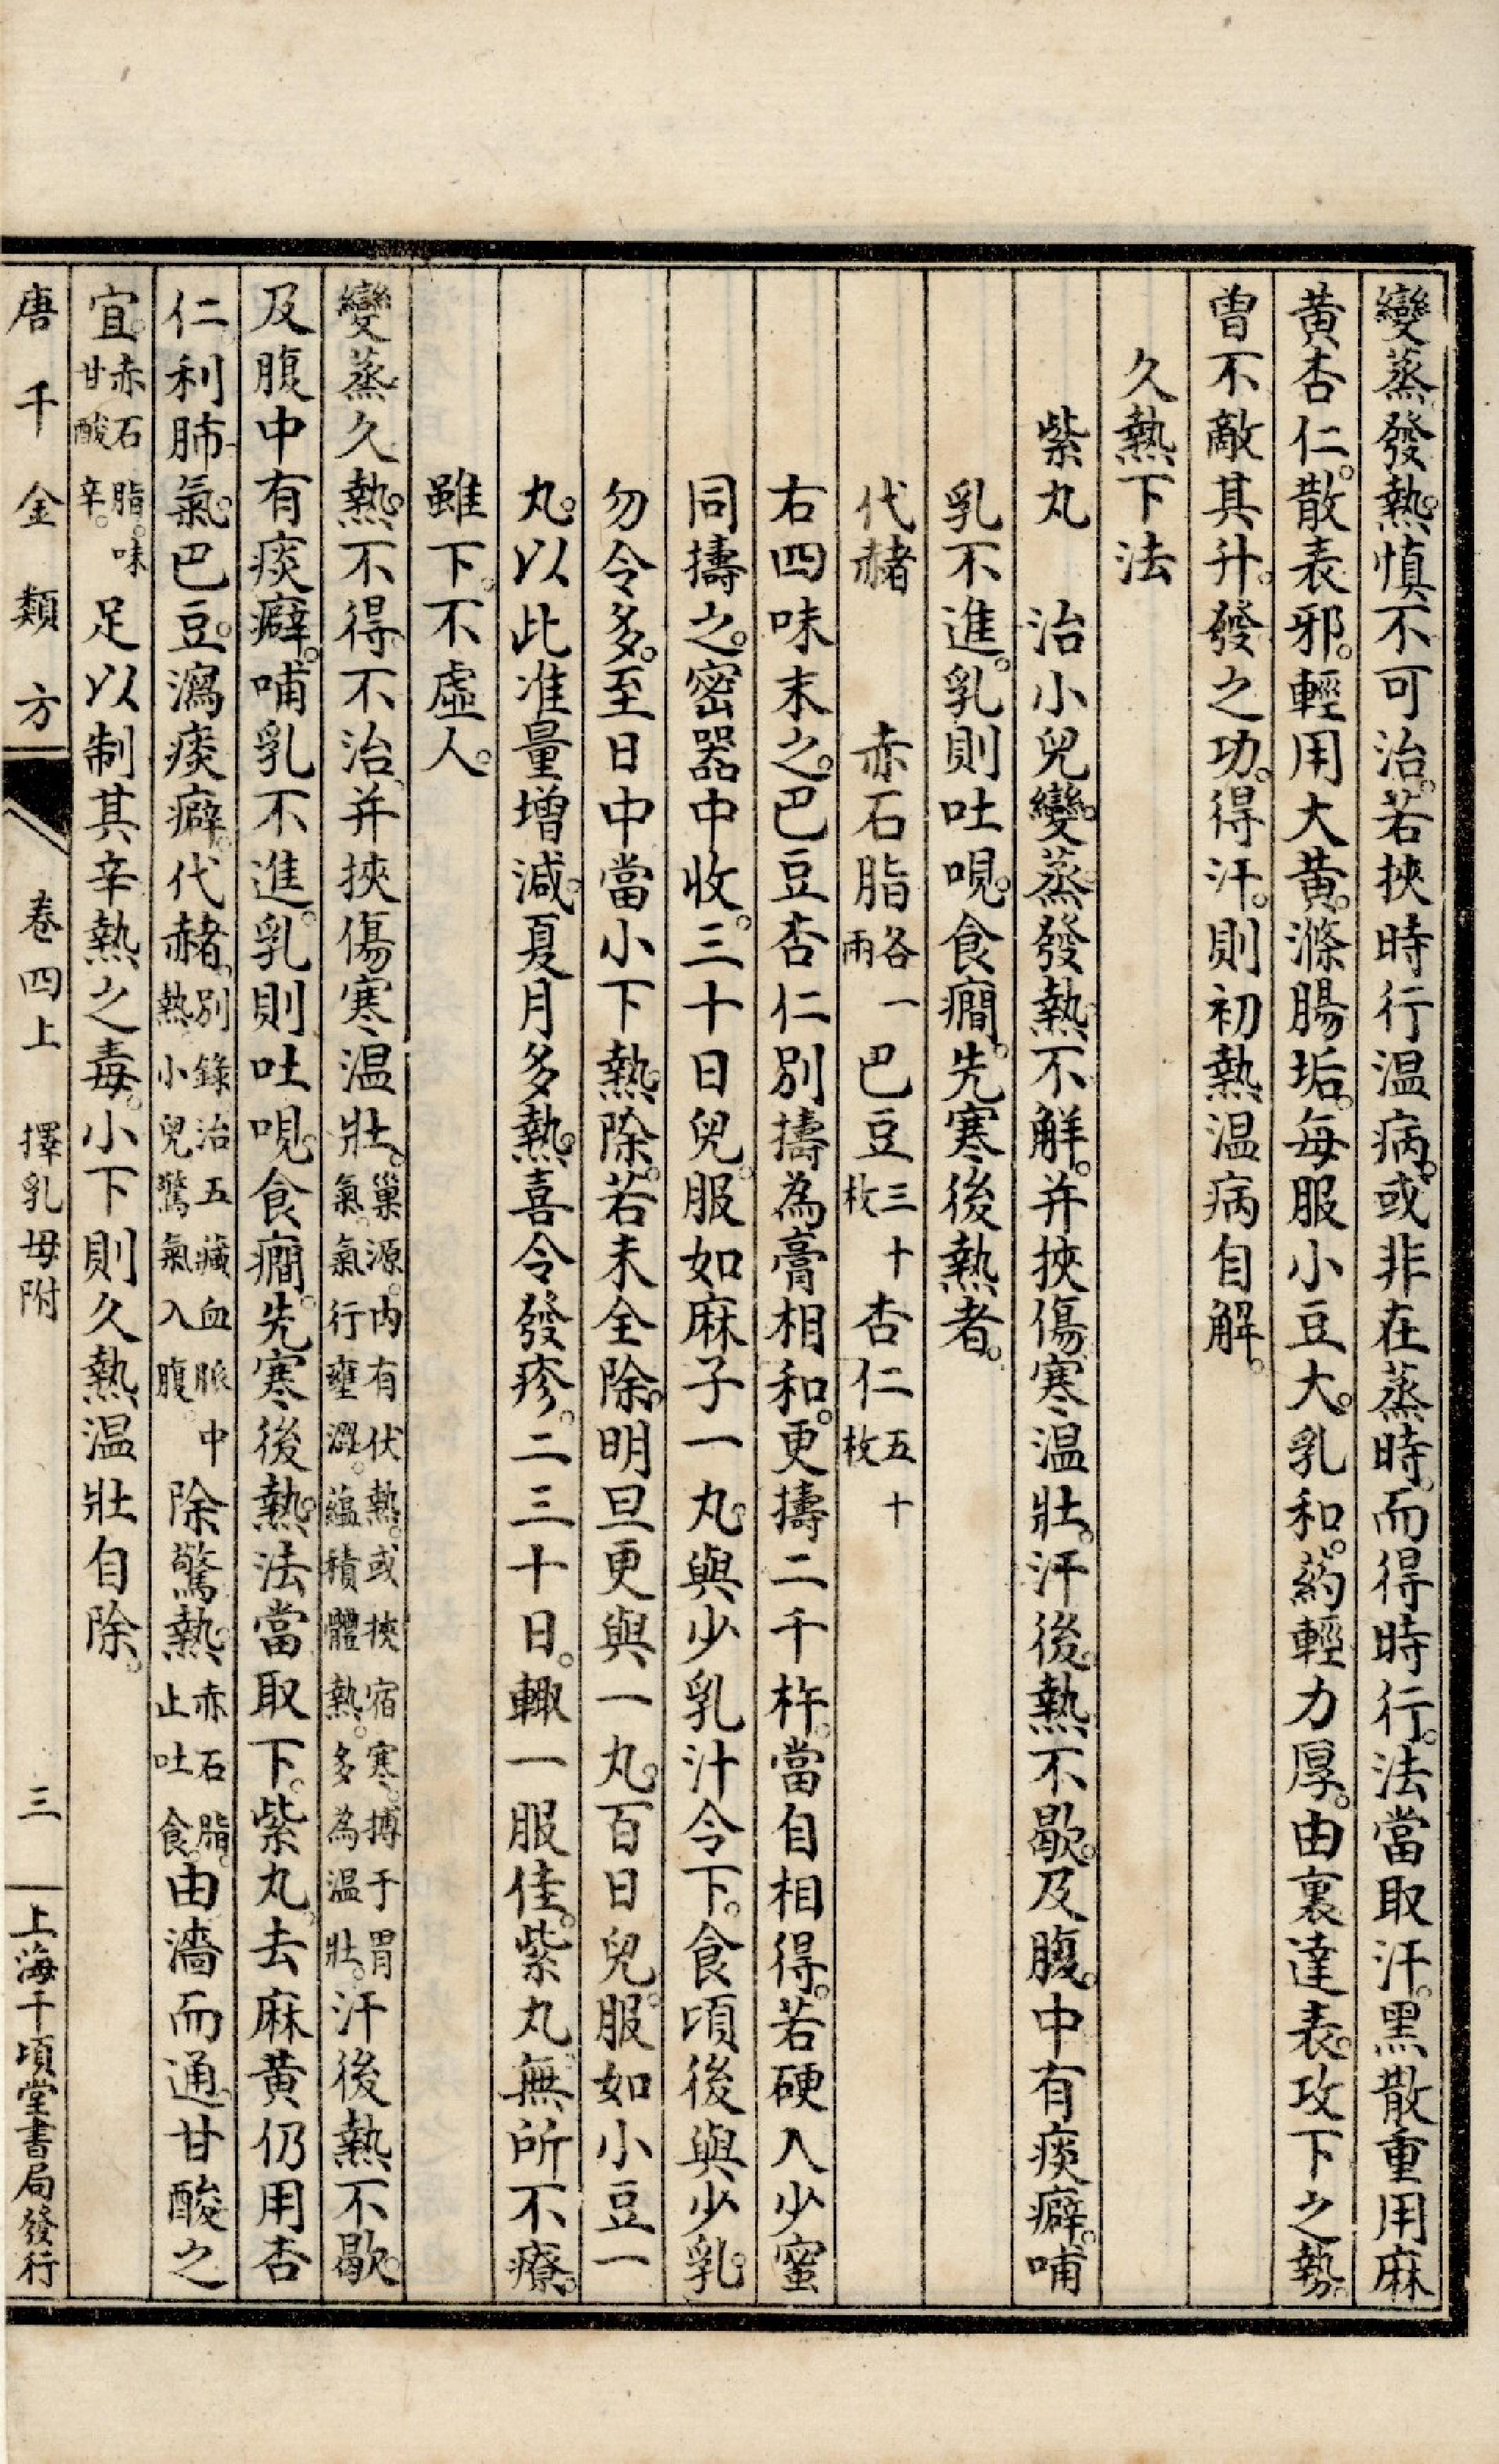 變蒸發熱。慎不可治。若挾時行温病。或非在蒸時。而得時行。法當取汗。黑散重用麻
黄杏仁。散表邪。輕用大黄。滌腸垢。每服小豆大。乳和。葯輕力厚。由裏達表。攻下之勢。
曾不敵其升。發之功。得汗。則初熱温病自解。
久熱下法
紫丸　治小兒變。蒸發熱不解。并挾傷寒温壯。汗後。熱不歇。及腹。中有痰癖。哺
乳不進。乳則吐哯。食癇。先寒後熱者。
代赭　赤石脂各一兩　巴豆三十枚　杏仁五十枚
右四味末之。巴豆杏仁別擣為膏相和。更擣二千杵。當自相得。若硬入少蜜
同擣之。密器中收。三十日兒。服如麻子一丸。與少乳汁令下。食頃後與少乳。
勿令多。至日中當小下熱除。若未全除。明旦更與一丸。百日兒。服如小豆一
丸。以此准量增減。夏月多熱。喜令發疹。二三十日。輙一服佳。紫丸無所不療。
雖下。不虛人。
變蒸久熱。不得不治、并挾傷寒温壯。巢源。内有伏熱。或挾宿寒。搏于胃氣。氣行壅澀。蘊積體熱。多為温壯。汗後熱不歇。
及腹中有痰癖。哺乳不進。乳則吐哯。食癇。先寒後熱。法當取下。紫丸。去麻黄仍用杏
仁。利肺氣。巴豆。瀉痰癖。代赭。別錄治五藏血脈中熱小兒驚氣入腹。除驚熱。赤石脂。止吐食。由濇而通。甘酸之
宜。赤石脂。味甘酸辛。足以制其辛熱之毒。小下則久熱温壯自除。
唐千金類方　卷四上　擇乳母附　三　上海千頃堂書局發行